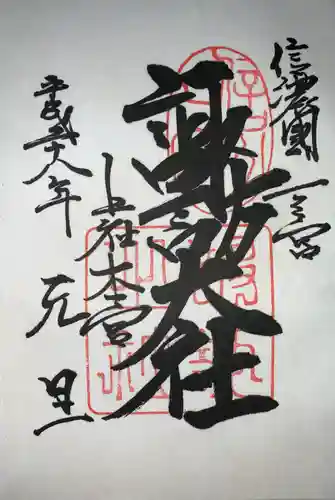 信濃國一之宮
諏訪大社
上社本宮
平成廿八年
元旦